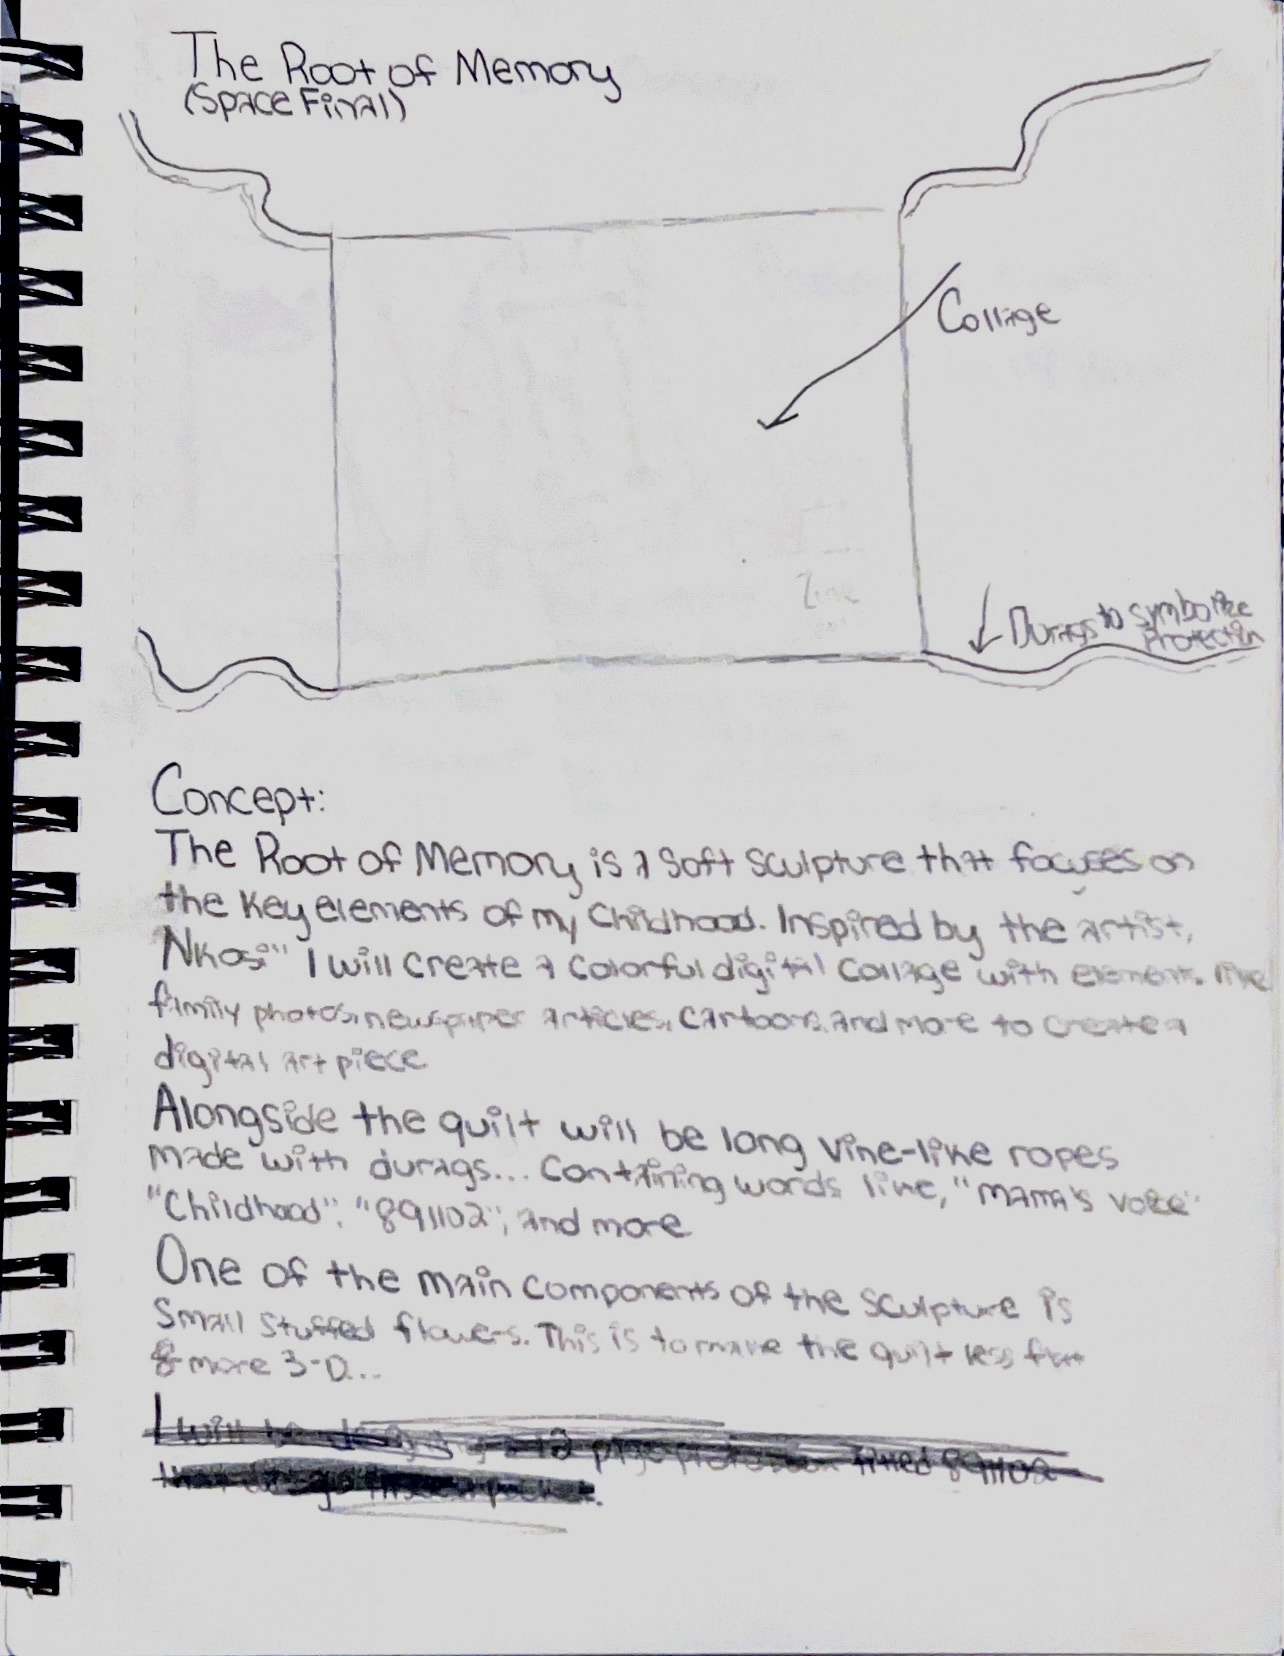 The Root of Memory
(Space Final)
Collage
Zine
Durags to symbolize
protection
Concept:
The Root of Memory is a soft sculpture that focuses on
the key elements of my childhood. Inspired by the artist,
Nkosi" I will create a colorful digital collage with elements like
family photos, newspaper articles, cartoons, and more to create a
digital art piece
Alongside the quilt will be long vine-like ropes
made with durags... containing words like, "MAMA's voice"
"Childhood", "891102", and more
One of the main components of the sculpture is
small stuffed flowers. This is to make the quilt less flat
& more 3-D...
I will be page titled 891102